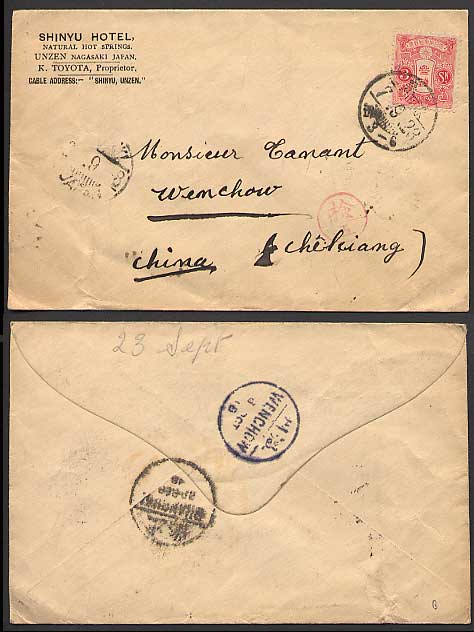 SHINYU HOTEL,
NATURAL HOT SPRINGS.
UNZEN NAGASAKI JAPAN.
K. TOYOTA, Proprietor.
CABLE ADDRESS:- "SHINYU, UNZEN."
JAPAN
Monsieur Tanant
Wenchow
China (Chêkiang)
23 Sept
WENCHOW
3 OCT
16
SHANGHAI